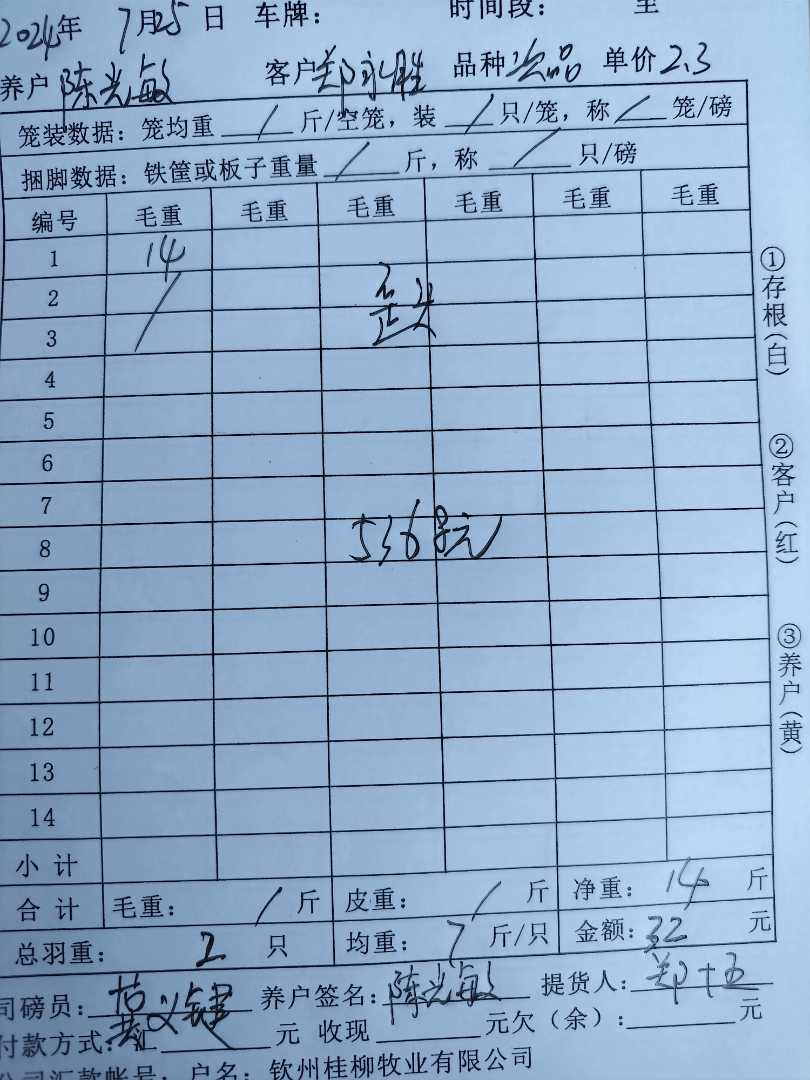 2024年 7月25日 车牌： 时间段： 至
养户 陈光敏 客户 郑永胜 品种 次品 单价 2.3
笼装数据：笼均重 / 斤/空笼，装 / 只/笼，称 / 笼/磅
捆脚数据：铁筐或板子重量 / 斤，称 / 只/磅
编号 毛重 毛重 毛重 毛重 毛重 毛重
1 14
2 /
3 歪头
4
5
6
7
8 536号元
9
10
11
12
13
14
小计
合计 毛重： / 斤 皮重： / 斤 净重： 14 斤
总羽重： 2 只 均重： 7 斤/只 金额： 32 元
司磅员： 黄义键 养户签名： 陈光敏 提货人： 郑十五
付款方式： 汇 元 收现 元欠（余）： 元
公司汇款帐号：户名：钦州桂柳牧业有限公司
①存根（白）
②客户（红）
③养户（黄）